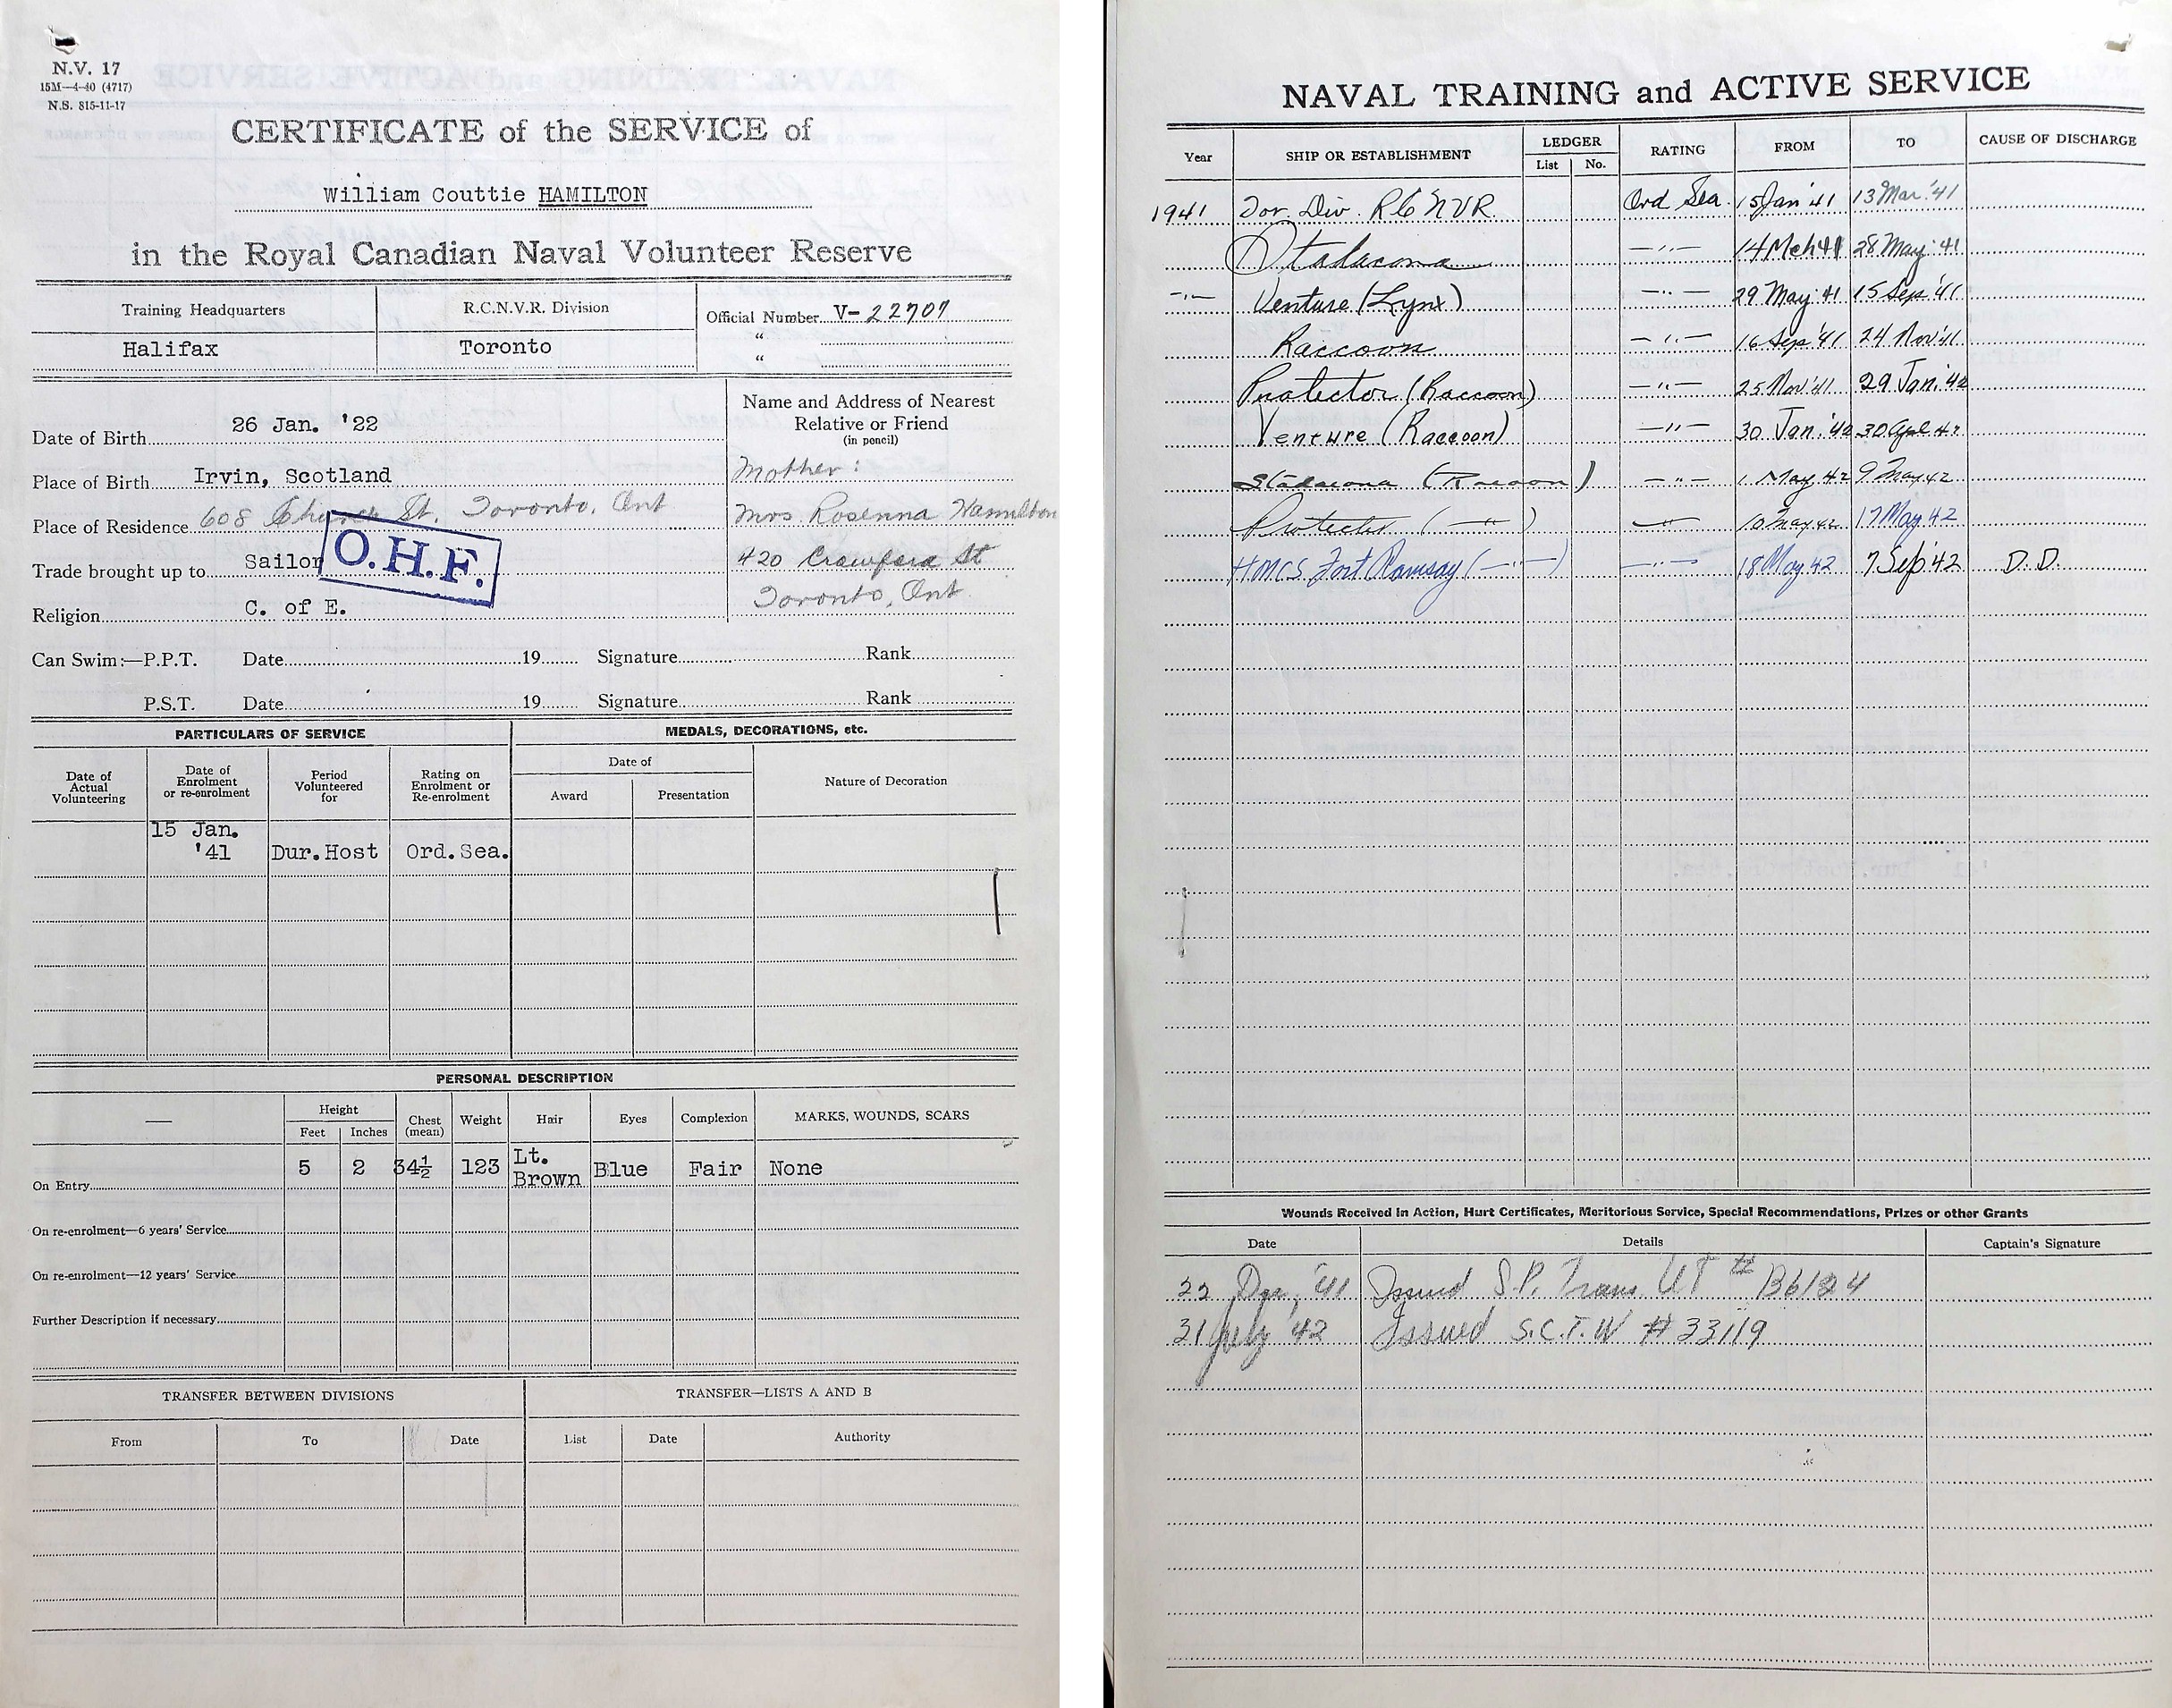 N.V. 17
15M—4-40 (4717)
N.S. 815-11-17
CERTIFICATE of the SERVICE of
William Couttie HAMILTON
in the Royal Canadian Naval Volunteer Reserve
Training Headquarters R.C.N.V.R. Division Official Number V-22707
Halifax Toronto "
"
Name and Address of Nearest
Relative or Friend
(in pencil)
Date of Birth 26 Jan. '22
Place of Birth Irvin, Scotland Mother:
Place of Residence 608 Church St. Toronto, Ont Mrs. Rosenna Hamilton
Trade brought up to Sailor 420 Crawford St
O.H.F.
Religion C. of E. Toronto, Ont
Can Swim:—P.P.T. Date 19 Signature Rank
P.S.T. Date 19 Signature Rank
PARTICULARS OF SERVICE MEDALS, DECORATIONS, etc.
Date of Actual Volunteering Date of Enrolment or re-enrolment Period Volunteered for Rating on Enrolment or Re-enrolment Date of Nature of Decoration
Award Presentation
15 Jan.
'41 Dur.Host Ord.Sea.
PERSONAL DESCRIPTION
— Height Chest (mean) Weight Hair Eyes Complexion MARKS, WOUNDS, SCARS
Feet Inches
On Entry 5 2 34½ 123 Lt. Brown Blue Fair None
On re-enrolment—6 years' Service
On re-enrolment—12 years' Service
Further Description if necessary
TRANSFER BETWEEN DIVISIONS TRANSFER—LISTS A AND B
From To Date List Date Authority
NAVAL TRAINING and ACTIVE SERVICE
Year SHIP OR ESTABLISHMENT LEDGER RATING FROM TO CAUSE OF DISCHARGE
List No.
1941 Tor. Div. RCNVR Ord Sea. 15 Jan '41 13 Mar. '41
Stadacona —"— 14 Mch 41 28 May '41
—"— Venture (Lynx) —"— 29 May '41 15 Sep '41
Raccoon —"— 16 Sep '41 24 Nov '41
Protector (Raccoon) —"— 25 Nov '41 29 Jan. '42
Venture (Raccoon) —"— 30 Jan. '42 30 Apl 42
Stadacona (Raccoon) —"— 1 May 42 9 May 42
Protector (—"—) —"— 10 May 42 17 May 42
HMCS Fort Ramsay (—"—) —"— 18 May 42 7 Sep '42 D.D.
Wounds Received in Action, Hurt Certificates, Meritorious Service, Special Recommendations, Prizes or other Grants
Date Details Captain's Signature
22 '41 Issued S.P. Trans. # B6124
31 July '42 Issued S.C.T.W # 33119